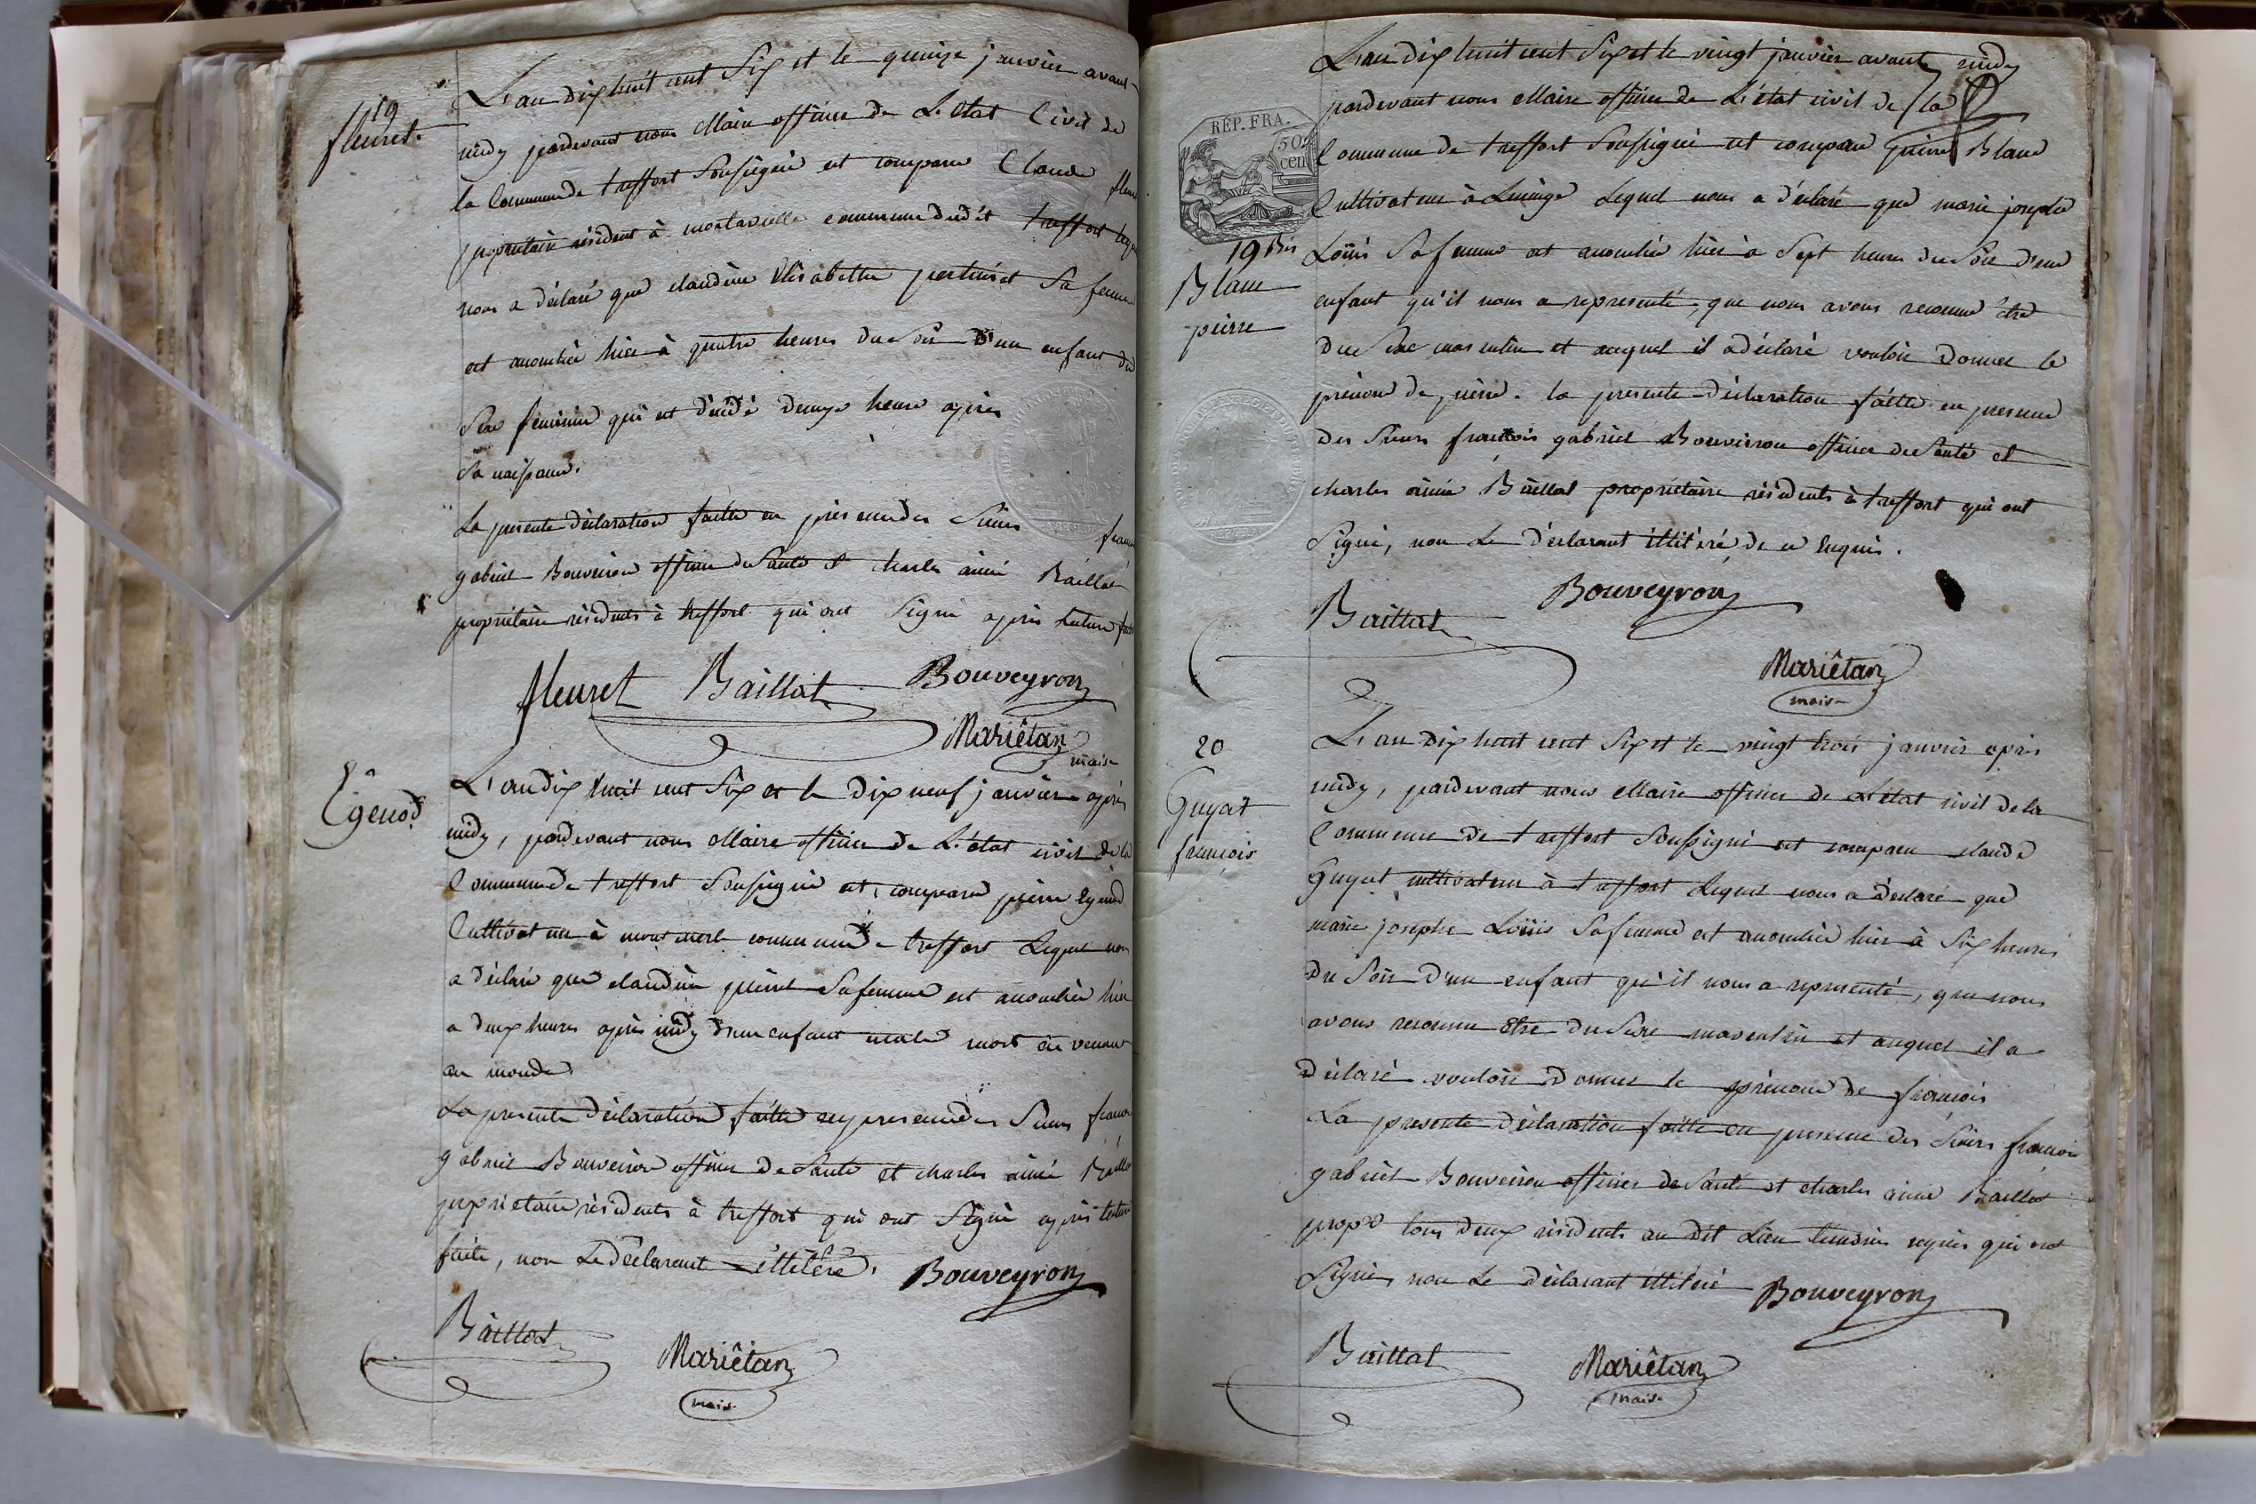 19
fleuret.
L'an dix huit cent Six et le quinze janvier avant
midy pardevant nous Maire officier de L'état Civil de
la Commune de treffort Soussigné est comparu Claude fleuret
propriétaire résident à montavielle commune dudit treffort
nous a déclaré que claudine Elisabeth sa femme
est accouchée hier à quatre heures du Soir d'un enfant du
Sexe féminin qui est décédé demye heure après
Sa naissance.
La presente déclaration faitte en presence des Sieurs
gabriel Bouveiron officier de Santé et charles aimé Baillat
propriétaire résidents à treffort qui ont Signé après lecture
fleuret Baillat Bouveyron
Mariêtan
maire
Egenod
L'an dix huit cent Six et le dix neuf janvier après
midy, pardevant nous Maire officier de L'état civil de la
Commune de treffort Soussigné est comparu pierre Egenod
Cultivateur à montmerle commune de treffort Lequel nous
a déclaré que claudine sa femme est accouchée hier
a deux heures après midy d'un enfant male mort en venant
au monde.
La presente déclaration faitte en presence des Sieurs
gabriel Bouveiron officier de Santé et charles aimé Baillat
propriétaire résidents à treffort qui ont Signé après lecture
faite, non Le déclarant illitéré. Bouveyron
Baillat
Mariêtan
maire
L'an dix huit cent Six et le vingt janvier avant midy
pardevant nous Maire officier de L'état civil de la
Commune de treffort Soussigné est comparu pierre Blanc
RÉP. FRA.
50
cen
Cultivateur à Lequel nous a déclaré que marie josephe
19 Bis
Loüis Sa femme est accouchée hier à Sept heures du Soir d'un
Blanc
enfant qu'il nous a representé, que nous avons reconnu être
pierre
du Sexe masculin et auquel il a déclaré vouloir donner le
prénom de pierre. la presente déclaration faitte en presence
des Sieurs françois gabriel Bouveiron officier de Santé et
charles aimé Baillat propriétaire résidents à treffort qui ont
Signé, non Le déclarant illitéré de ce Enquis.
Baillat Bouveyron
Mariêtan
maire
20
Guyat
françois
L'an dix huit cent Six et le vingt trois janvier après
midy, pardevant nous Maire officier de L'état civil de la
Commune de treffort Soussigné est comparu claude
Guyat cultivateur à treffort Lequel nous a déclaré que
marie josephe Loüis Sa femme est accouchée hier à Six heures
du Soir d'un enfant qu'il nous a representé, que nous
avons reconnu être du Sexe masculin et auquel il a
déclaré vouloir donner le prénom de françois
La presente déclaration faitte en presence des Sieurs françois
gabriel Bouveiron officier de Santé et charles aimé Baillat
propre tous deux résidents au dit Lieu témoins requis qui ont
Signé, non Le déclarant illitéré Bouveyron
Baillat
Mariêtan
maire